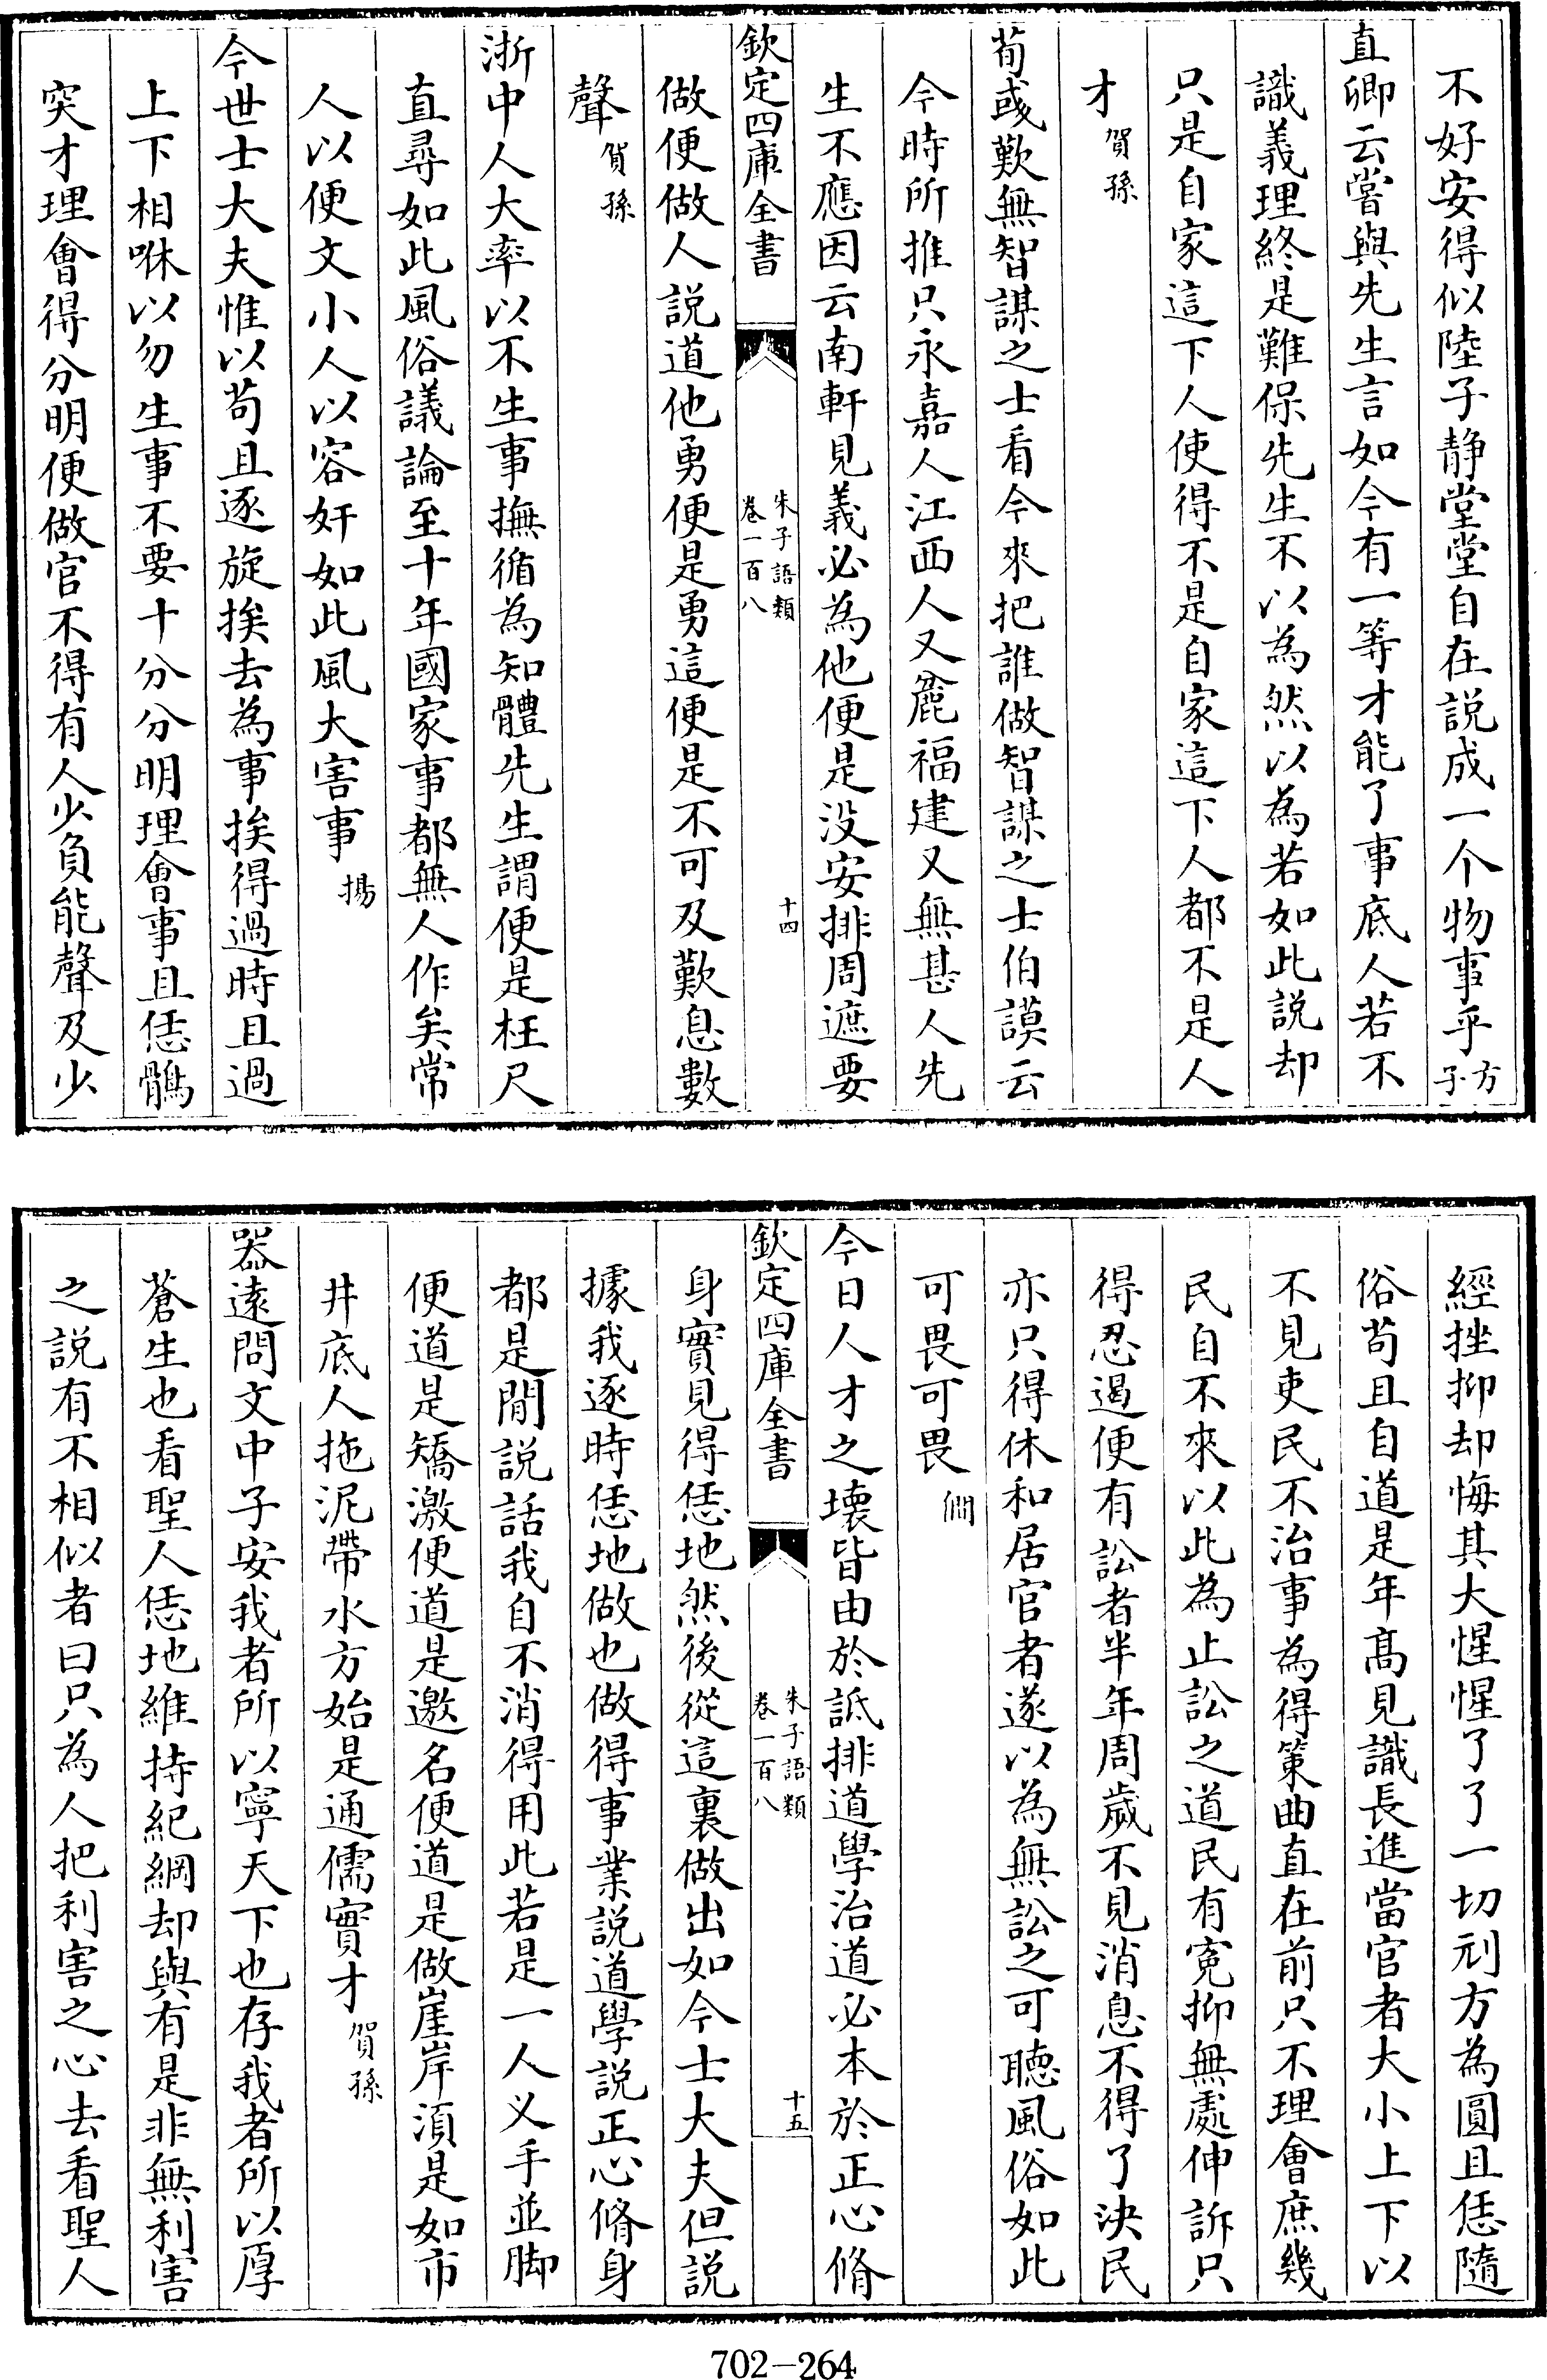 不好安得似陸子静堂堂自在説成一个物事乎方子
直卿云嘗與先生言如今有一等才能了事底人若不
識義理終是難保先生不以為然以為若如此説却
只是自家這下人使得不是自家這下人都不是人
才賀孫
荀彧歎無智謀之士看今來把誰做智謀之士伯謨云
今時所推只永嘉人江西人又麄福建又無甚人先
生不應因云南軒見義必為他便是没安排周遮要
欽定四庫全書
朱子語類
卷一百八
十四
做便做人説道他勇便是勇這便是不可及歎息數
聲賀孫
浙中人大率以不生事撫循為知體先生謂便是枉尺
直尋如此風俗議論至十年國家事都無人作矣常
人以便文小人以容奸如此風大害事揚
今世士大夫惟以苟且逐旋挨去為事挨得過時且過
上下相咻以勿生事不要十分分明理會事且恁鶻
突才理會得分明便做官不得有人少負能聲及少
經挫抑却悔其大惺惺了了一切刓方為圓且恁隨
俗苟且自道是年髙見識長進當官者大小上下以
不見吏民不治事為得策曲直在前只不理會庶幾
民自不來以此為止訟之道民有寃抑無處伸訴只
得忍遏便有訟者半年周歲不見消息不得了決民
亦只得休和居官者遂以為無訟之可聴風俗如此
可畏可畏僴
今日人才之壞皆由於詆排道學治道必本於正心脩
欽定四庫全書
朱子語類
卷一百八
十五
身實見得恁地然後從這裏做出如今士大夫但説
據我逐時恁地做也做得事業説道學説正心脩身
都是閒説話我自不消得用此若是一人义手並脚
便道是矯激便道是邀名便道是做崖岸湏是如市
井底人拖泥帶水方始是通儒實才賀孫
器逺問文中子安我者所以寧天下也存我者所以厚
蒼生也看聖人恁地維持紀綱却與有是非無利害
之説有不相似者曰只為人把利害之心去看聖人
702-264